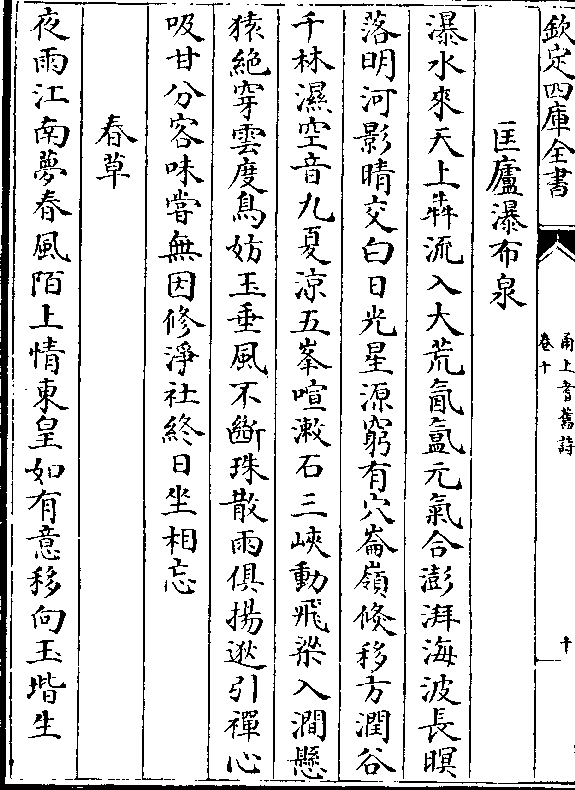 欽定四庫全書
甬上耆舊詩
卷十
十
匡廬瀑布泉
瀑水來天上犇流入大荒氤氳元氣合澎湃海波長暝
落明河影晴交白日光星源窮有穴崙嶺倐移方潤谷
千林濕空音九夏涼五峯喧漱石三峽動飛梁入澗懸
猿絶穿雲度鳥妨玉垂風不斷珠散雨俱揚逖引禪心
吸甘分客味嘗無因修淨社終日坐相忘
春草
夜雨江南夢春風陌上情東皇如有意移向玉堦生